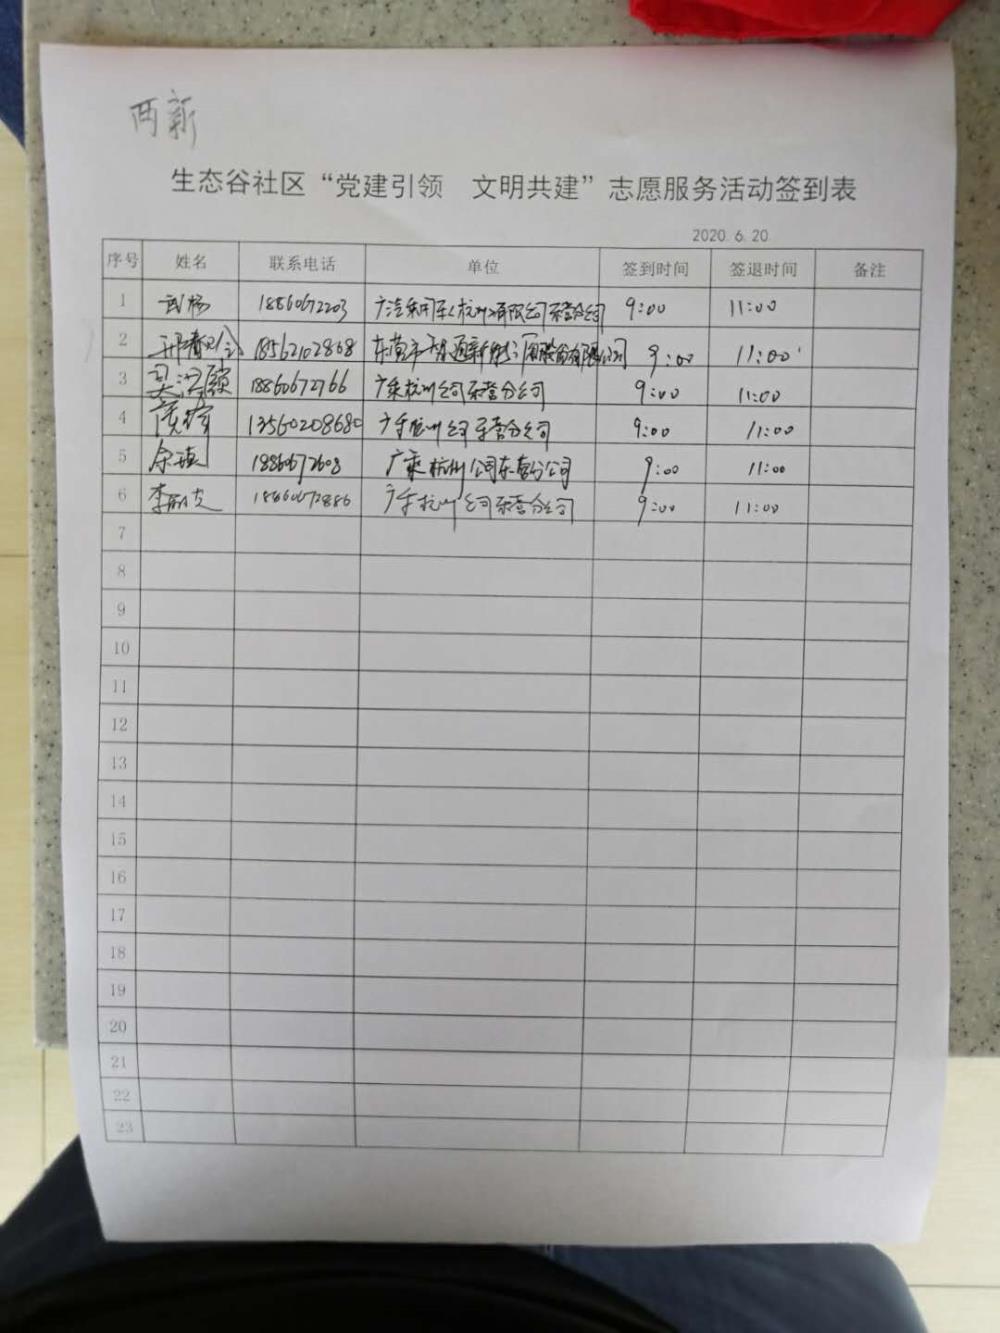 西新
生态谷社区“党建引领 文明共建”志愿服务活动签到表
2020.6.20
序号 姓名 联系电话 单位 签到时间 签退时间 备注
1 武杨 18860672203 广汽乘用车(杭州)有限公司东营分公司 9:00 11:00
2 18562102868 东营市 股份有限公司 9:00 11:00
3 18860672766 广乘杭州公司东营分公司 9:00 11:00
4 13560208680 广乘杭州公司东营分公司 9:00 11:00
5 18860672608 广乘杭州公司东营分公司 9:00 11:00
6 18860672886 广乘杭州公司东营分公司 9:00 11:00
7
8
9
10
11
12
13
14
15
16
17
18
19
20
21
22
23